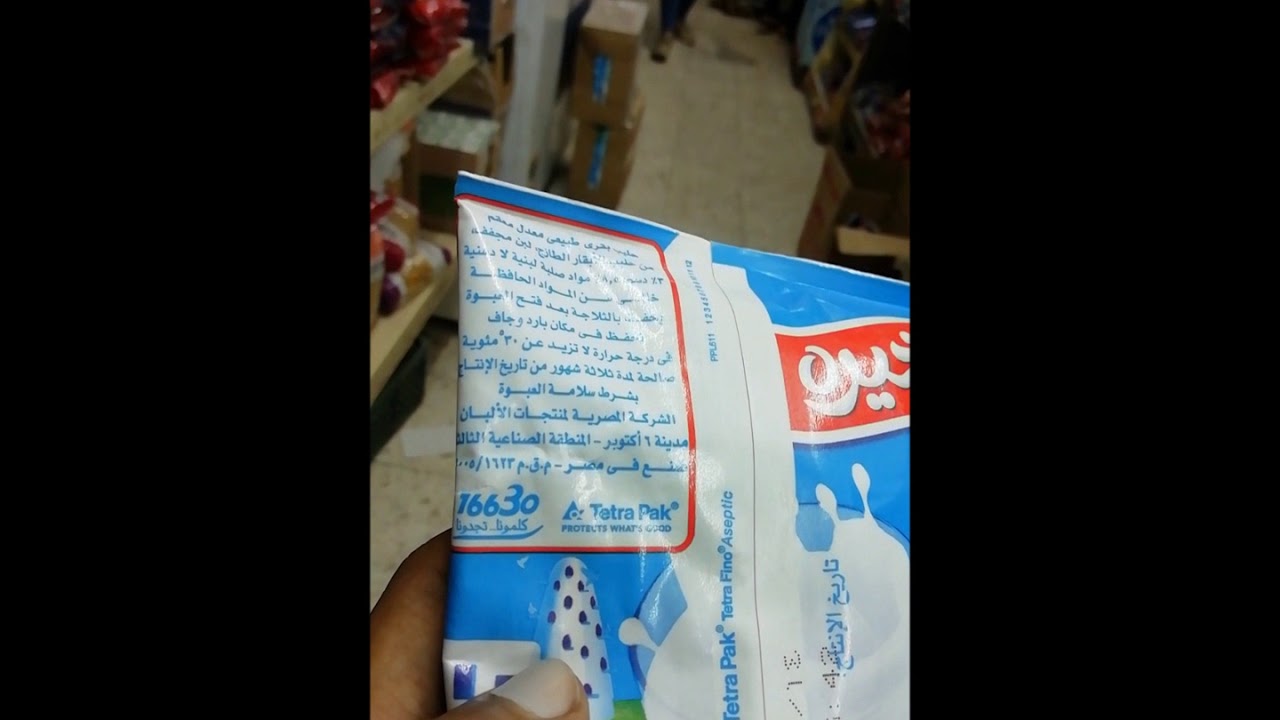 حليب بقرى طبيعى معدل معقم
من حليب الأبقار الطازج، لبن مجففة
٣٪ دسم مواد صلبة لبنية لا دهنية
من المواد الحافظة
يحفظ بالثلاجة بعد فتح العبوة
يحفظ فى مكان بارد وجاف
فى درجة حرارة لا تزيد عن ٣٠° مئوية
صالحة لمدة ثلاثة شهور من تاريخ الإنتاج
بشرط سلامة العبوة
الشركة المصرية لمنتجات الألبان
مدينة ٦ أكتوبر - المنطقة الصناعية
صنع فى مصر - م.ق.م ١٦٢٣/
16630
كلمونا.. تجدونا
Tetra Pak®
PROTECTS WHAT'S GOOD
PPL611
Tetra Pak® Tetra Fino® Aseptic
تاريخ الإنتاج